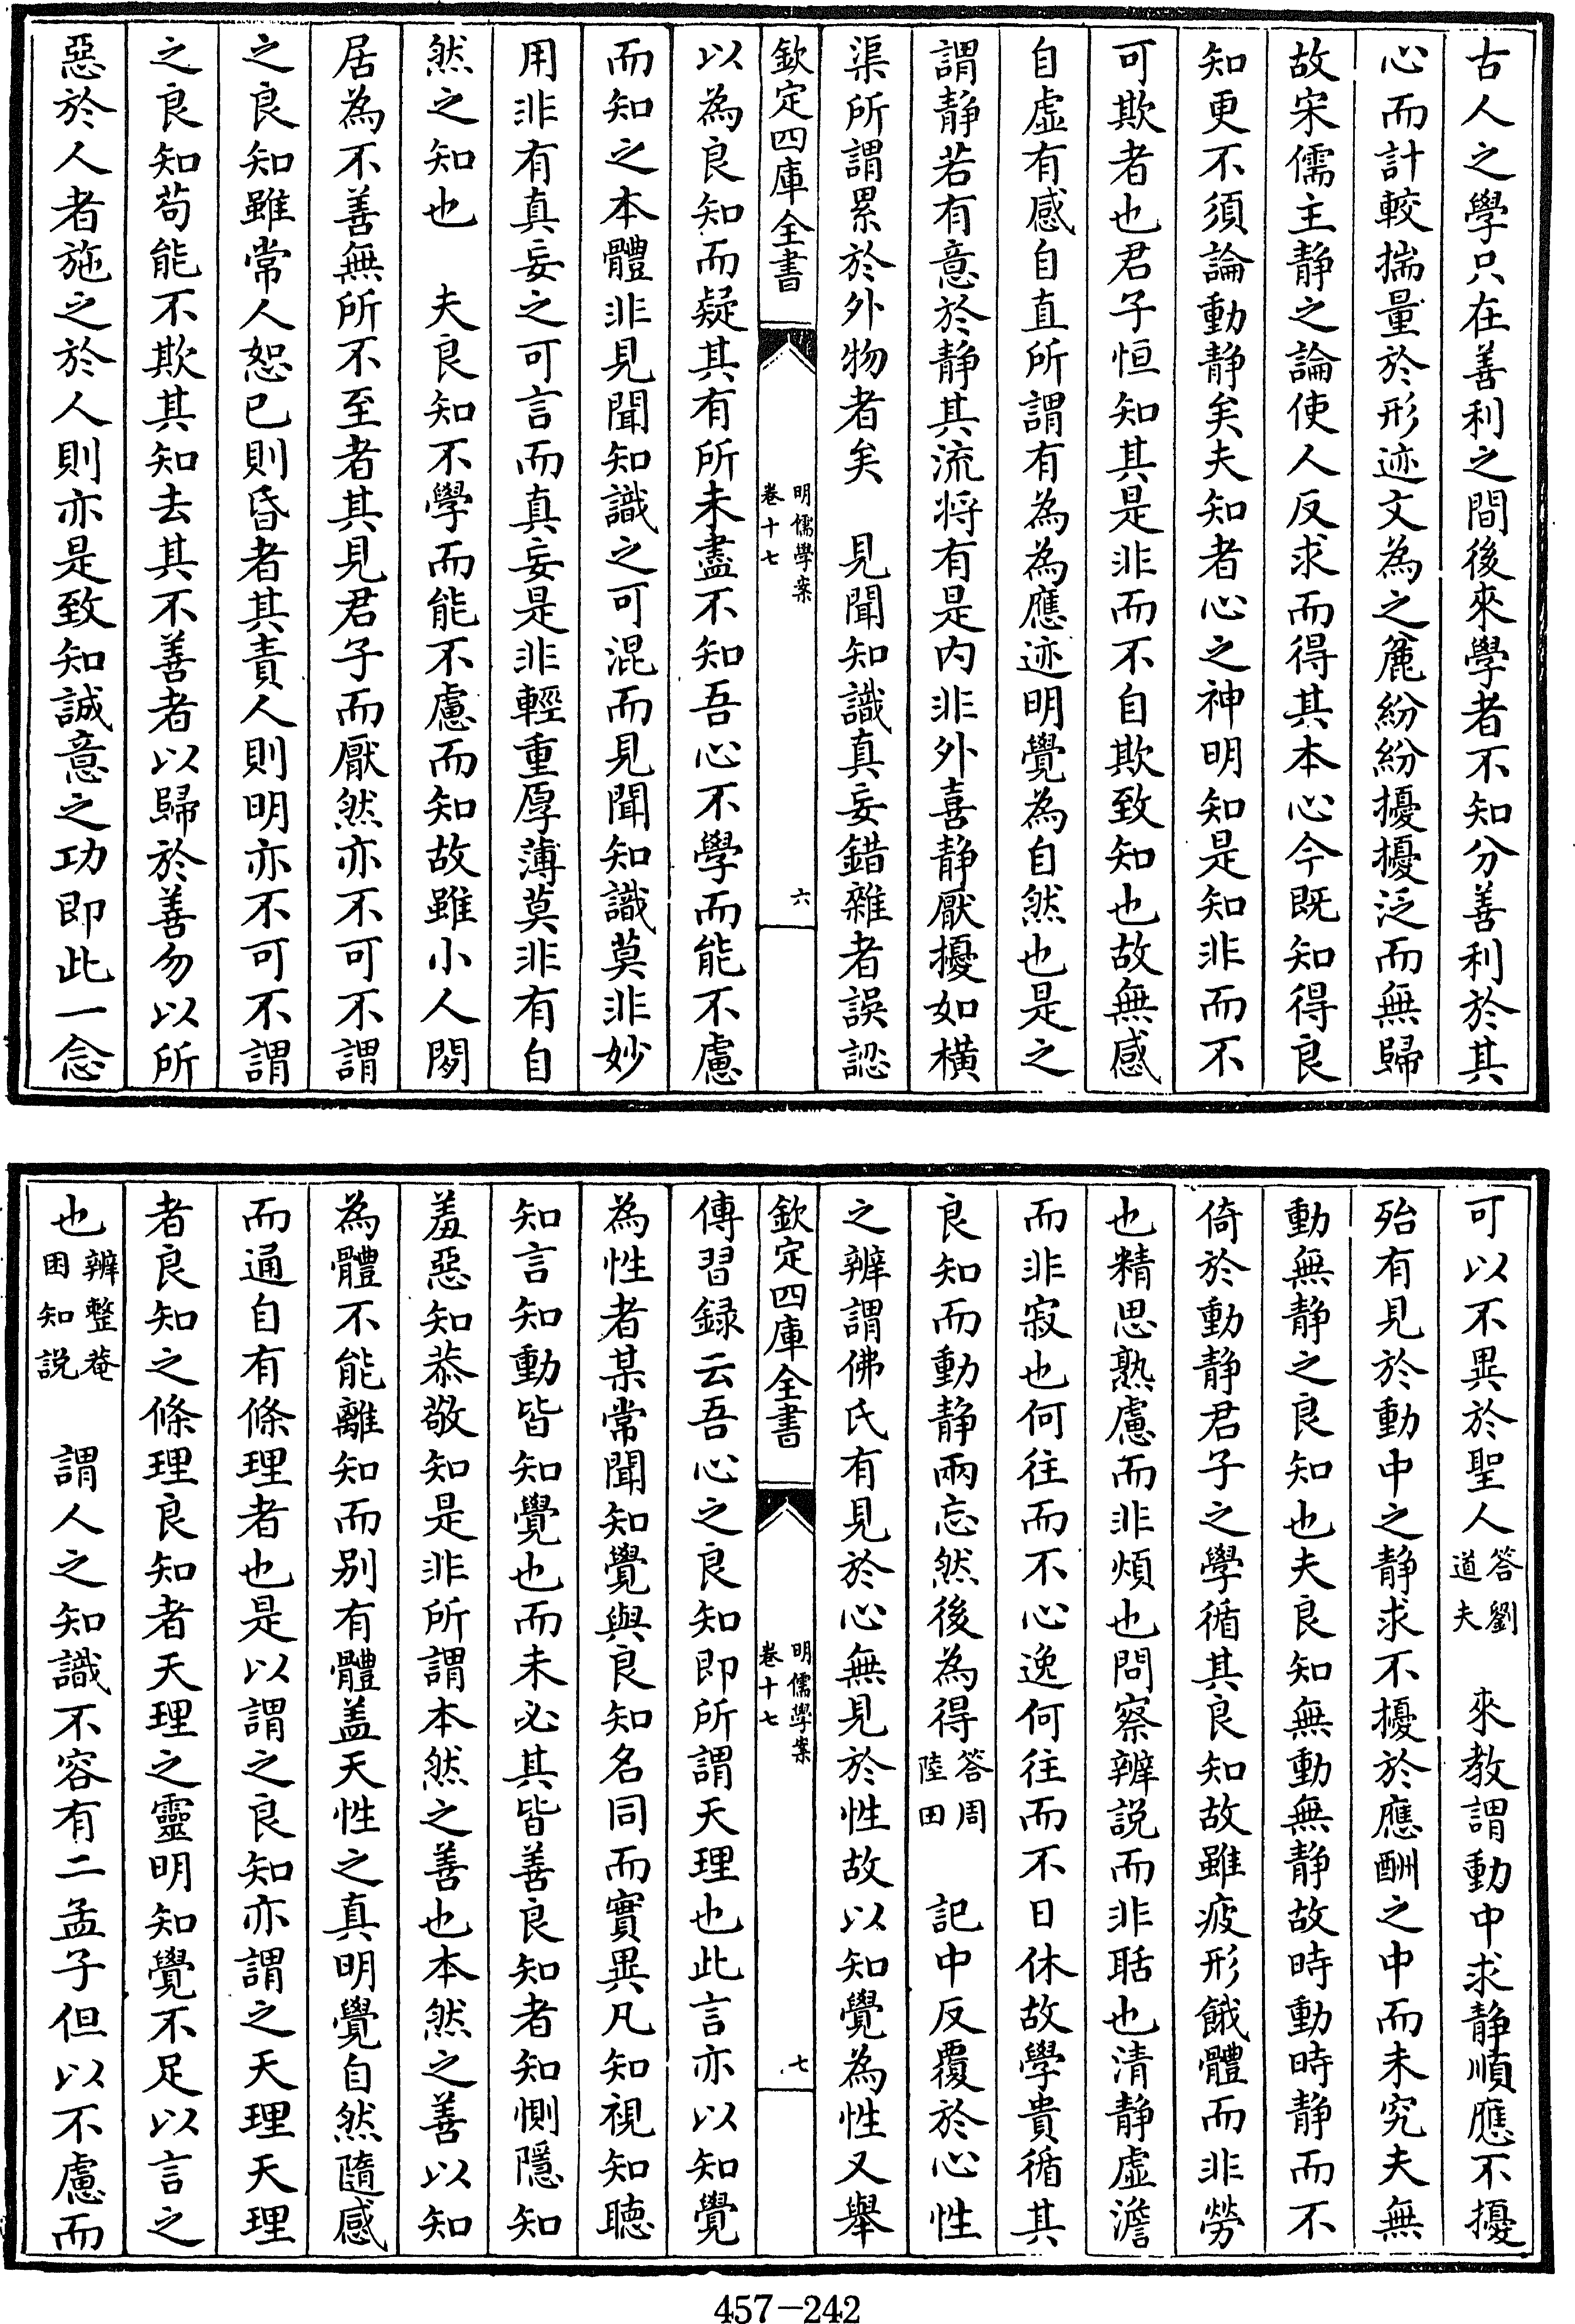 古人之學只在善利之間後來學者不知分善利於其
心而計較揣量於形迹文為之麄紛紛擾擾泛而無歸
故宋儒主静之論使人反求而得其本心今既知得良
知更不須論動静矣夫知者心之神明知是知非而不
可欺者也君子恒知其是非而不自欺致知也故無感
自虚有感自直所謂有為為應迹明覺為自然也是之
謂静若有意於静其流将有是内非外喜静厭擾如横
渠所謂累於外物者矣　見聞知識真妄錯雜者誤認
欽定四庫全書
明儒學案
卷十七
六
以為良知而疑其有所未盡不知吾心不學而能不慮
而知之本體非見聞知識之可混而見聞知識莫非妙
用非有真妄之可言而真妄是非輕重厚薄莫非有自
然之知也　夫良知不學而能不慮而知故雖小人閒
居為不善無所不至者其見君子而厭然亦不可不謂
之良知雖常人恕已則昏者其責人則明亦不可不謂
之良知苟能不欺其知去其不善者以歸於善勿以所
惡於人者施之於人則亦是致知誠意之功即此一念
可以不異於聖人答劉道夫　來教謂動中求静順應不擾
殆有見於動中之静求不擾於應酬之中而未究夫無
動無静之良知也夫良知無動無静故時動時静而不
倚於動静君子之學循其良知故雖疲形餓體而非勞
也精思熟慮而非煩也問察辨説而非聒也清静虚澹
而非寂也何往而不心逸何往而不日休故學貴循其
良知而動静兩忘然後為得答周陸田　記中反覆於心性
之辨謂佛氏有見於心無見於性故以知覺為性又舉
欽定四庫全書
明儒學案
卷十七
七
傳習録云吾心之良知即所謂天理也此言亦以知覺
為性者某常聞知覺與良知名同而實異凡知視知聽
知言知動皆知覺也而未必其皆善良知者知惻隠知
羞惡知恭敬知是非所謂本然之善也本然之善以知
為體不能離知而别有體盖天性之真明覺自然隨感
而通自有條理者也是以謂之良知亦謂之天理天理
者良知之條理良知者天理之靈明知覺不足以言之
也辨整菴困知説　謂人之知識不容有二孟子但以不慮而
457-242